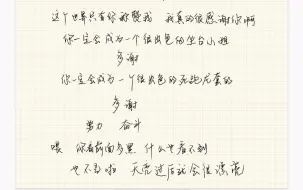 这个世界只有你称赞我 我真的很感谢你啊
你一定会成为一个很出色的坐台小姐
多谢
你一定会成为一个很出色的死跑龙套的
多谢
努力 奋斗
喂 你看前面多黑 什么也看不到
也不是啦 天亮过后就会很漂亮